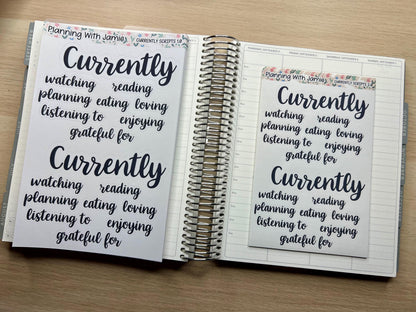 Planning With Jamie
CURRENTLY SCRIPTS 1.0
Currently
watching reading
planning eating loving
listening to enjoying
grateful for
Currently
watching reading
planning eating loving
listening to enjoying
grateful for
Planning With Jamie
Currently
watching reading
planning eating loving
listening to enjoying
grateful for
Currently
watching reading
planning eating loving
listening to enjoying
grateful for